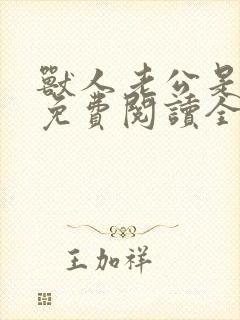 獸人老公是
免費閱讀全
王加祥